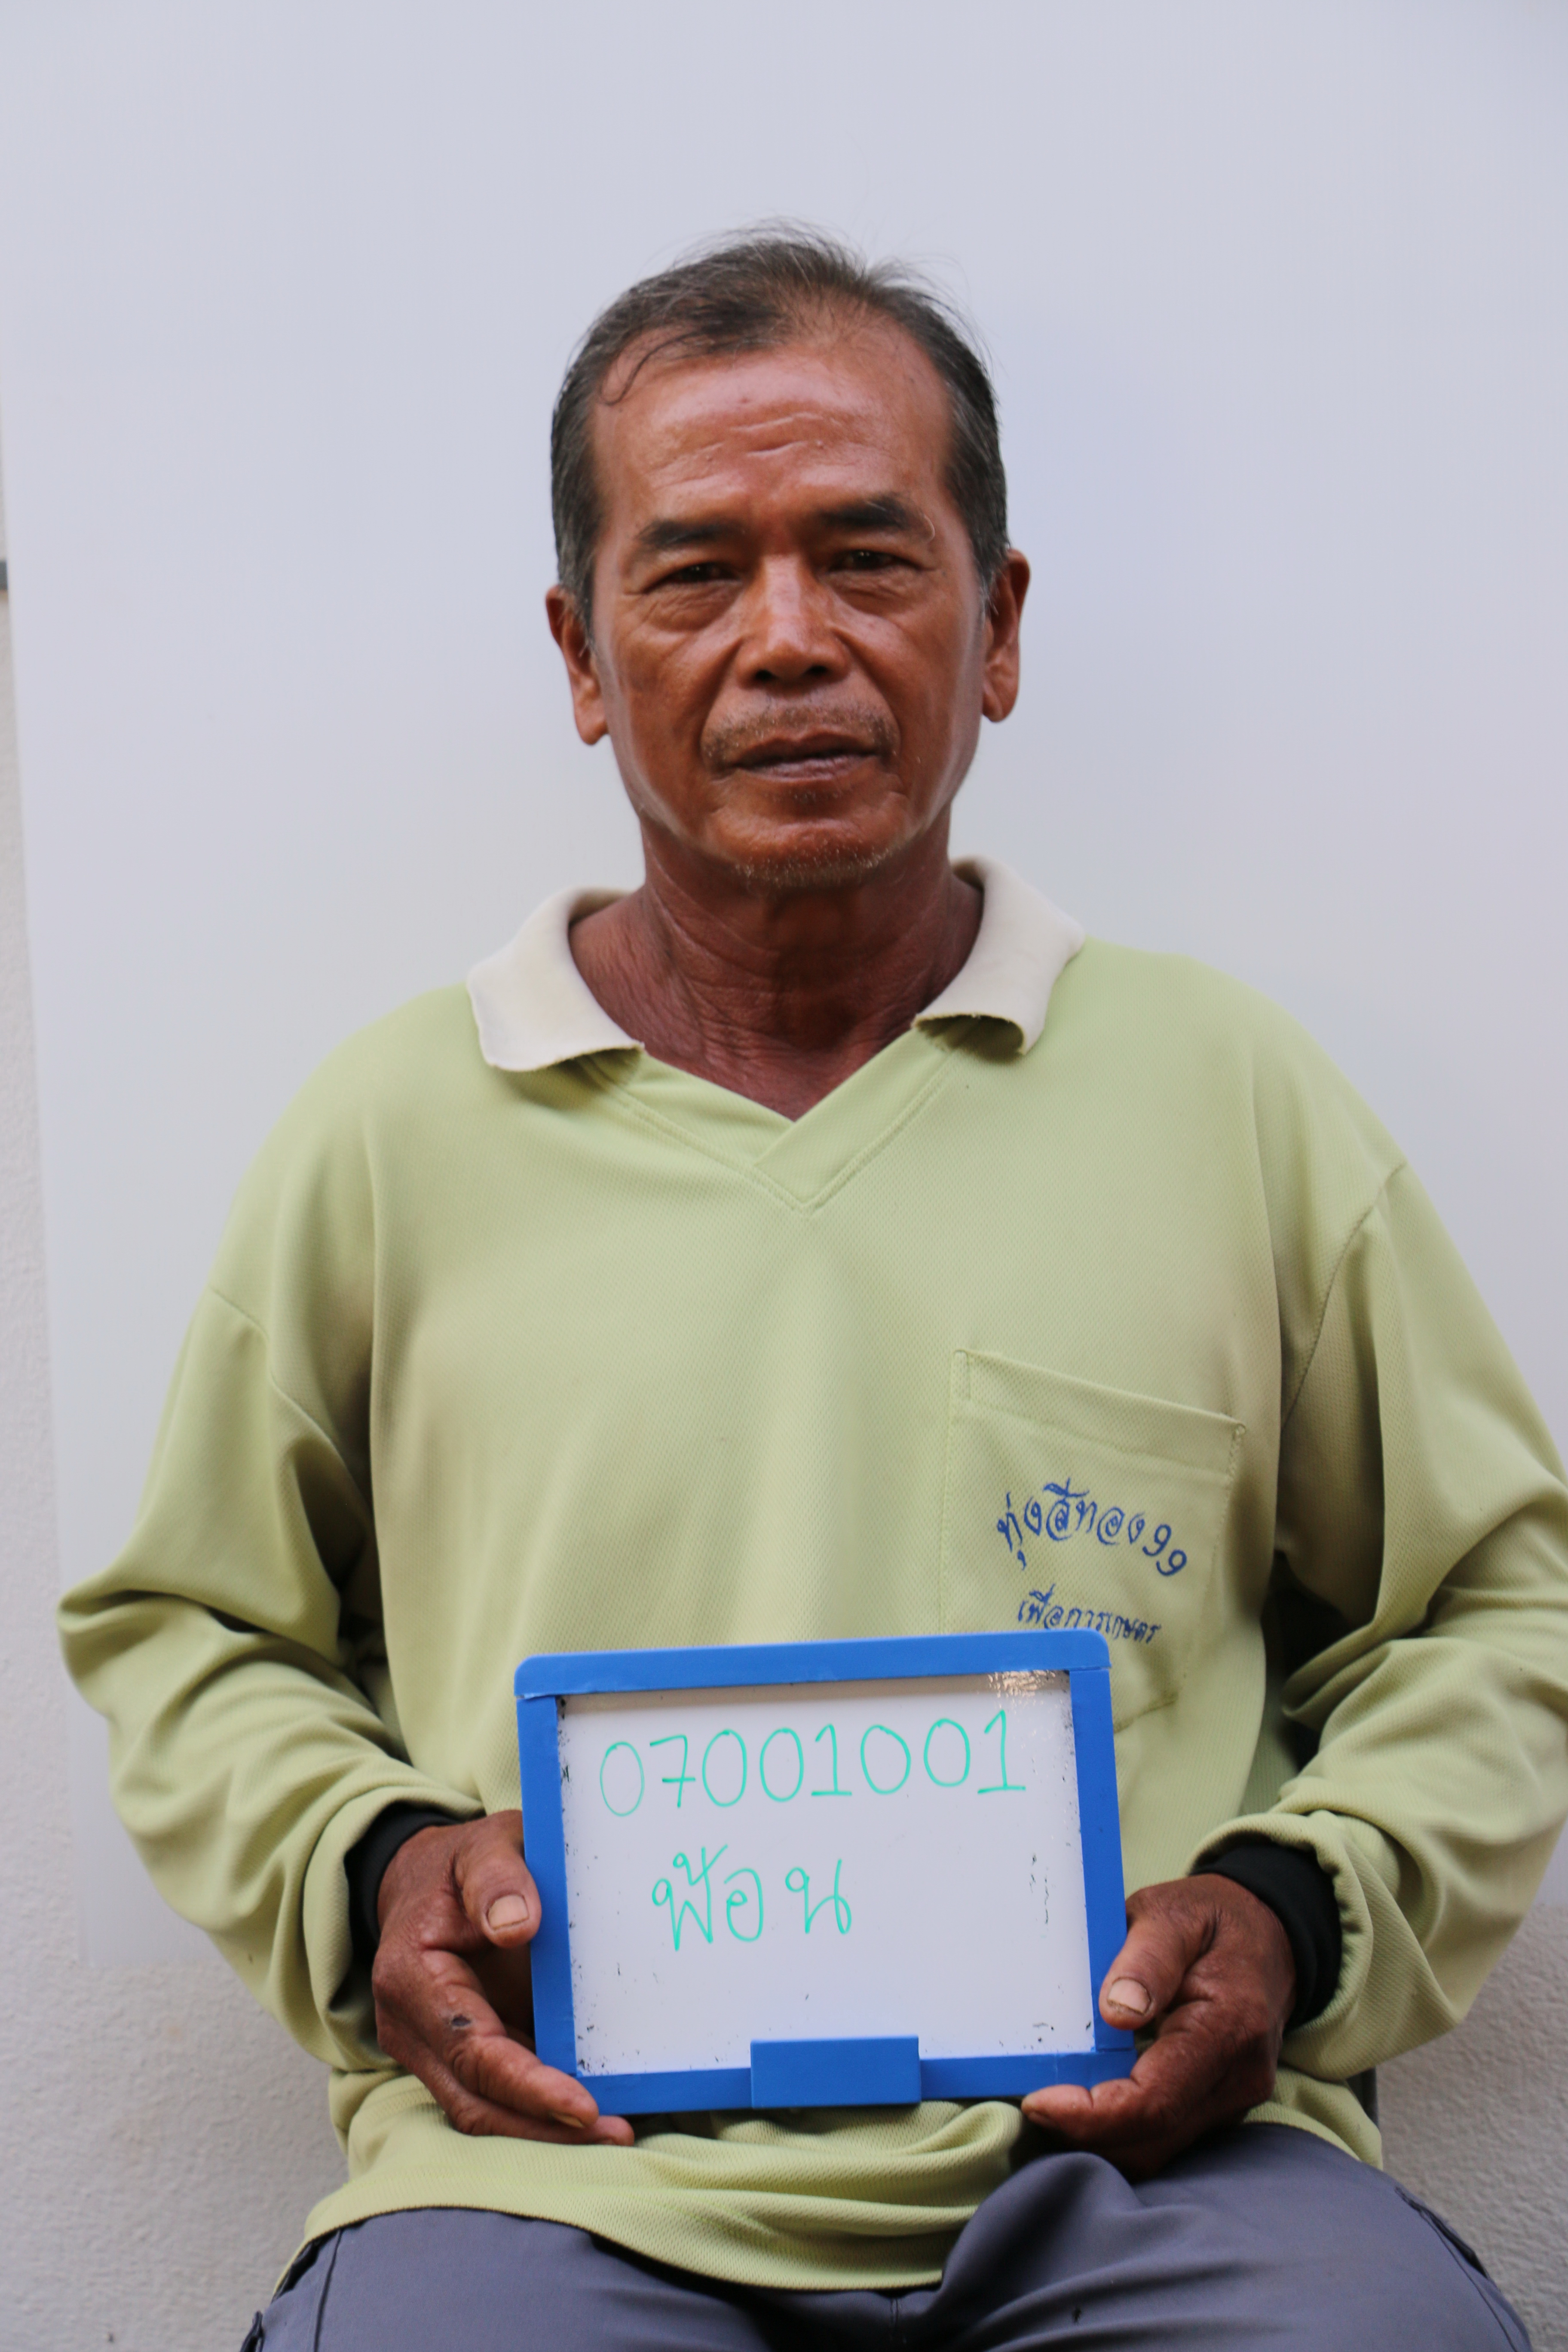 ทุ่งสีทอง99
เพื่อการเกษตร
07001001
ฟ้อน